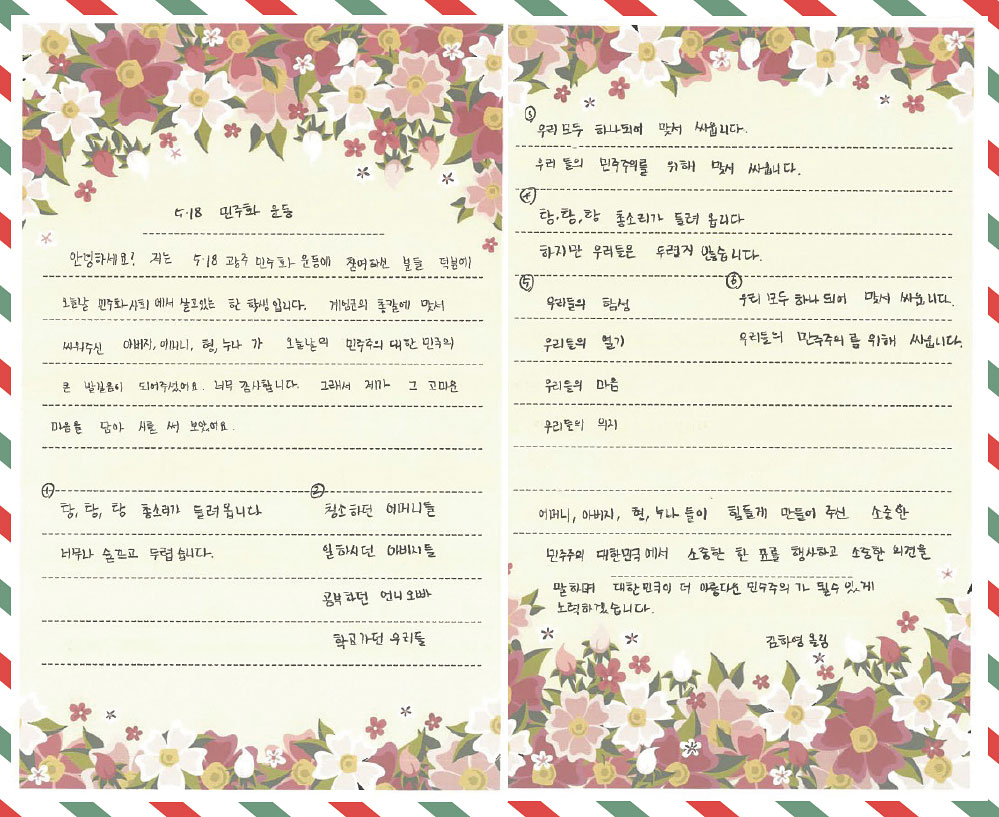 5·18 민주화 운동
안녕하세요! 저는 5·18 광주 민주화 운동에 참여하신 분들 덕분에
오늘날 민주화 사회에서 살고있는 한 학생입니다. 계엄군의 총칼에 맞서
싸워주신 아버지, 어머니, 형, 누나 가 오늘날의 민주주의 대한 민국의
큰 발걸음이 되어주셨어요. 너무 감사합니다. 그래서 제가 그 고마운
마음을 담아 시를 써 보았어요.
①
탕, 탕, 탕 총소리가 들려옵니다
너무나 슬프고 두렵습니다.
②
청소하던 어머니들
일하시던 아버지들
공부하던 언니오빠
학교가던 우리들
③
우리모두 하나되어 맞서 싸웁니다.
우리 들의 민주주의를 위해 맞서 싸웁니다.
④
탕, 탕, 탕 총소리가 들려 옵니다
하지만 우리들은 두렵지 않습니다.
⑤
우리들의 함성
우리들의 열기
우리들의 마음
우리들의 의지
⑥
우리 모두 하나 되어 맞서 싸웁니다.
우리들의 민주주의를 위해 싸웁니다.
어머니, 아버지, 형, 누나 들이 힘들게 만들어 주신 소중한
민주주의 대한민국에서 소중한 한 표를 행사하고 소중한 의견을
말하며 대한민국이 더 아름다운 민주주의 가 될수 있게
노력하겠습니다.
김하영 올림